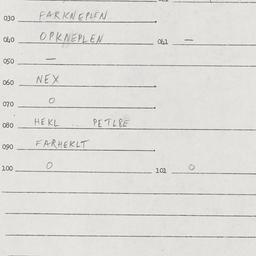 030 FARKNEPLEN
040 OPKNEPLEN 041 —
050 —
060 NEX
070 0
080 HEKL .. PETLBE
090 FARHEKLT
100 0 101 0